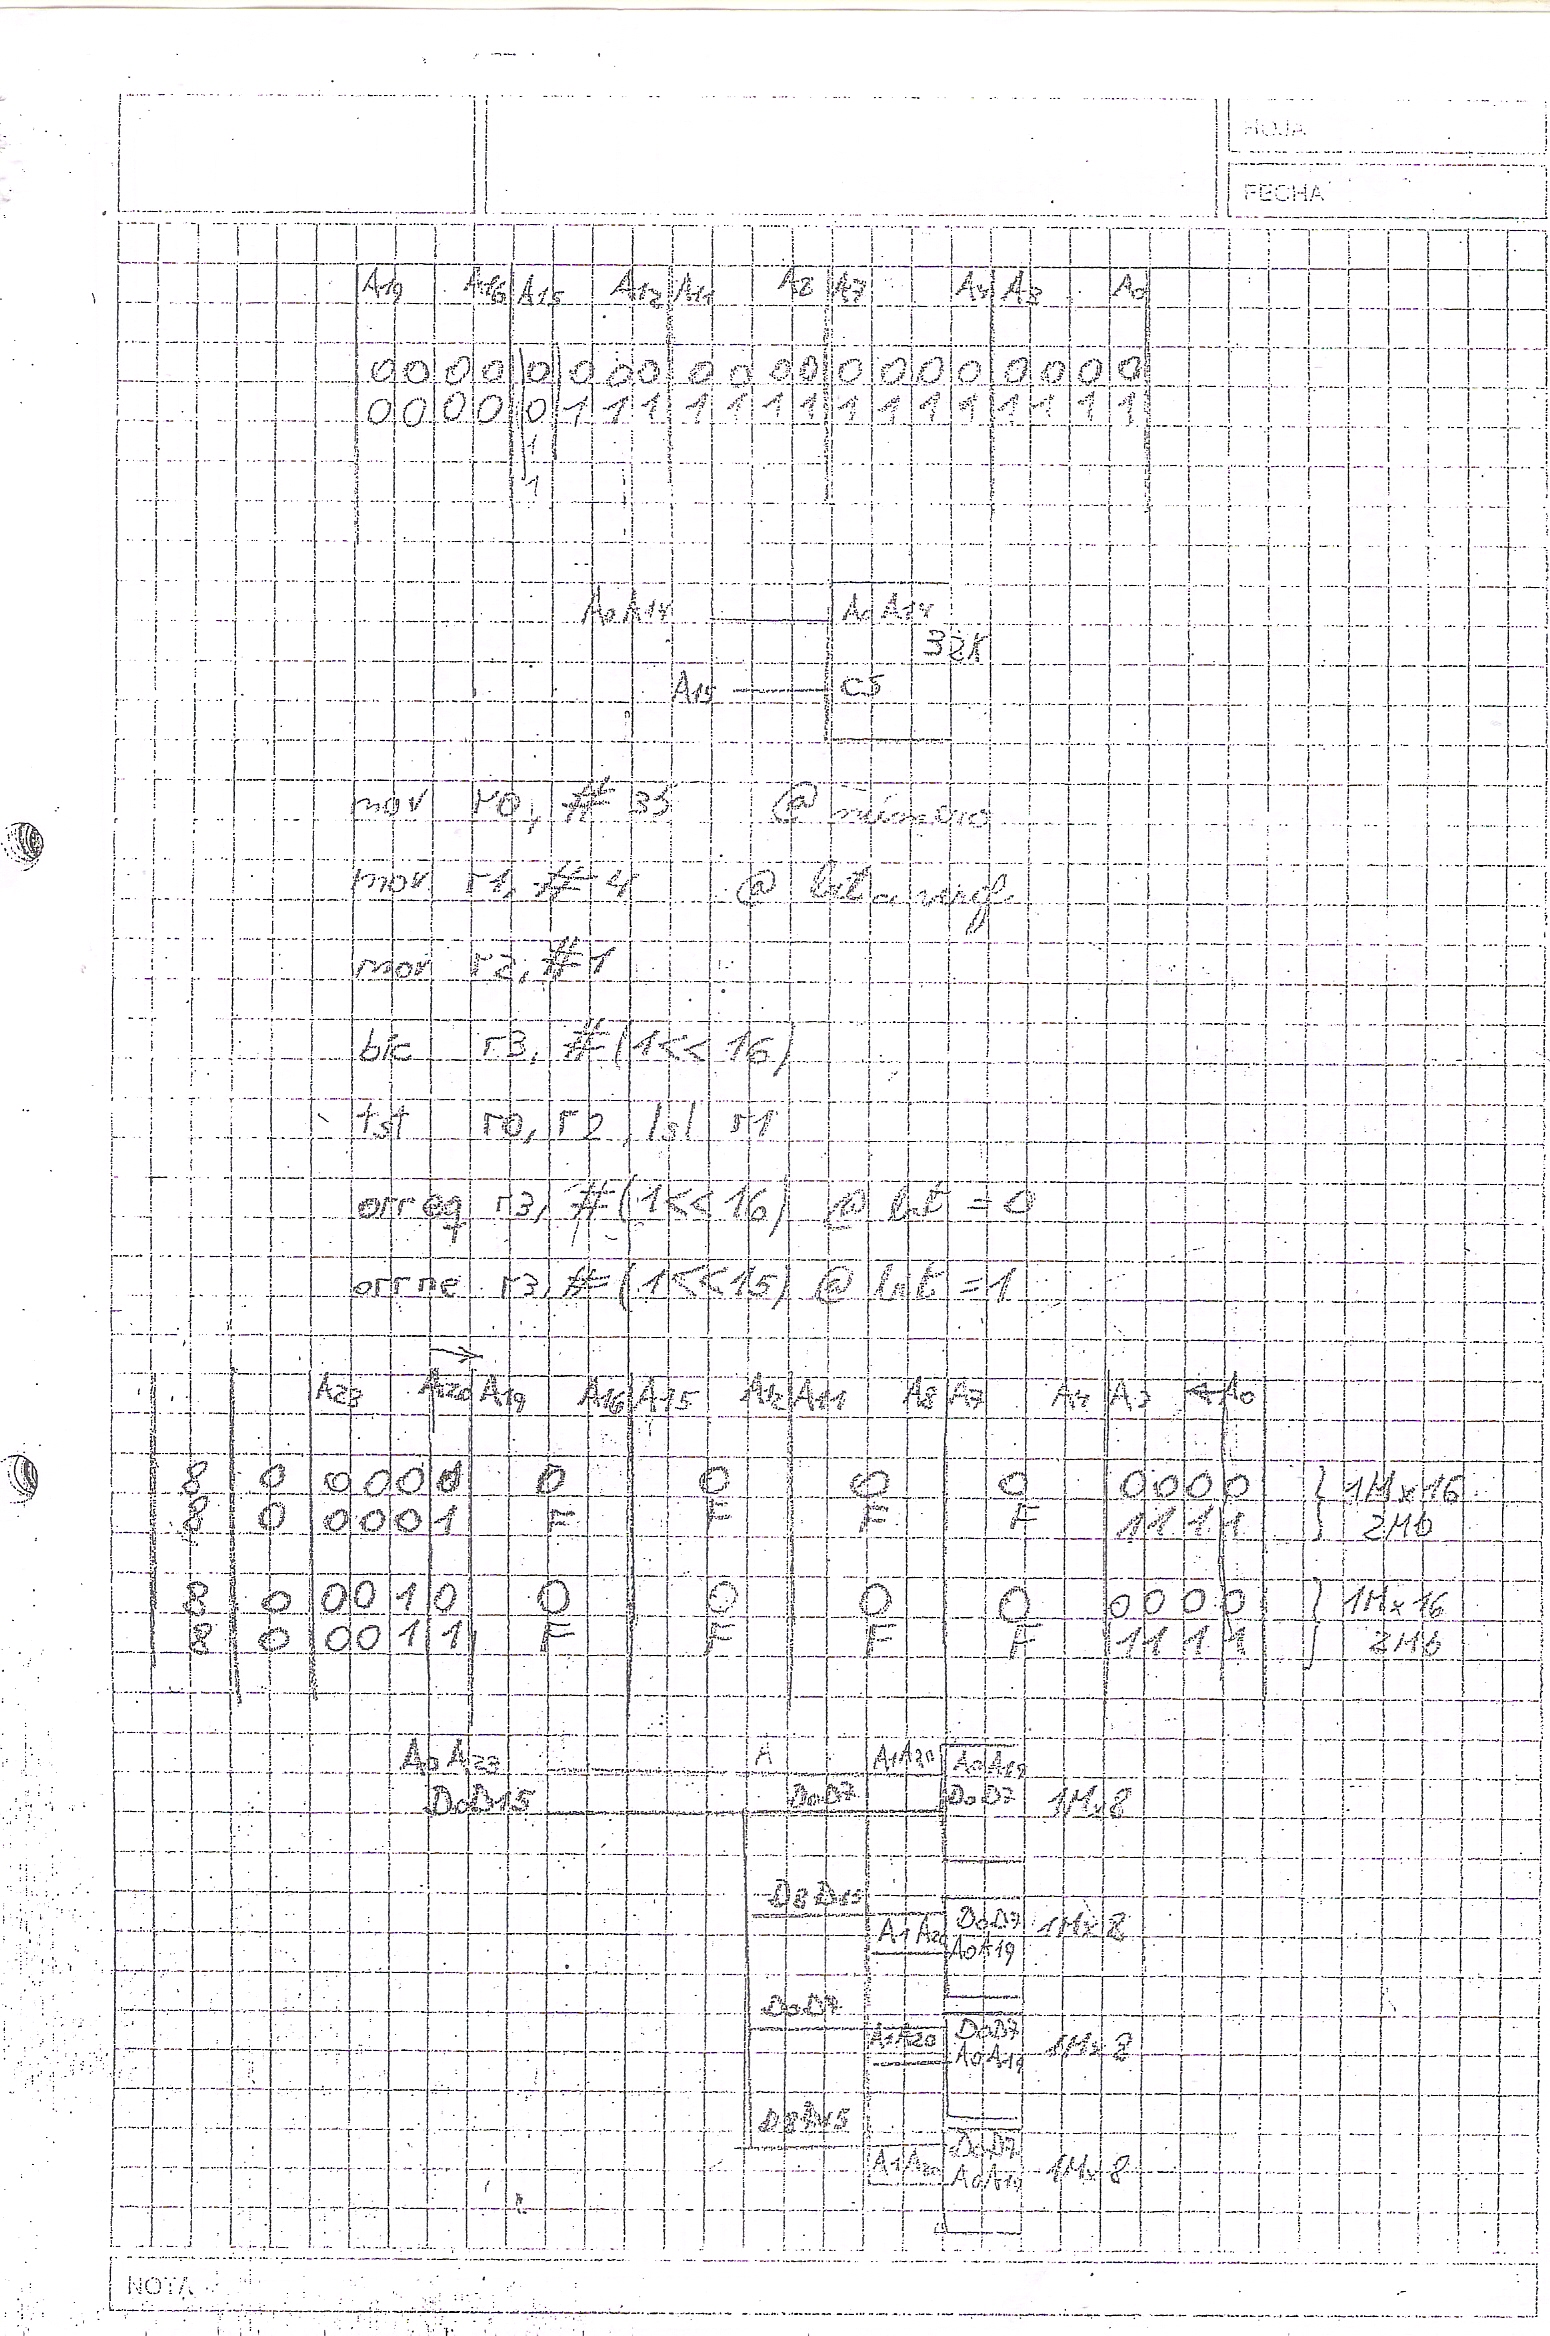 HOJA
FECHA
A19 A16 A15 A12 A11 A8 A7 A4 A3 A0
0 0 0 0 0 0 0 0 0 0 0 0 0 0 0 0 0 0 0 0
0 0 0 0 0 1 1 1 1 1 1 1 1 1 1 1 1 1 1 1
1
1
A0 A14 A0 A14
32K
A15 CS
mov r0, # 35 @ número
mov r1, # 4 @ bit a verif.
mov r2, #1
bic r3, #(1<<16)
tst r0, r2, lsl r1
orreq r3, #(1<<16) @ bit = 0
orrne r3, #(1<<15) @ bit = 1
A23 A20 A19 A16 A15 A12 A11 A8 A7 A4 A3 A0
8 0 0000 0 0 0 0 0000 } 1Mx16
8 0 0001 F F F F 1111 } 2Mb
8 0 0010 0 0 0 0 0000 } 1Mx16
8 0 0011 F F F F 1111 } 2Mb
A0 A23 A A1A20 A0A19
D0D15 D0D7 D0D7 1Mx8
D8D15 D0D7 1Mx8
A1A20 A0A19
D0D7 D0D7
A1A20 A0A19 1Mx8
D8D15 D0D7
A1A20 A0A19 1Mx8
NOTA